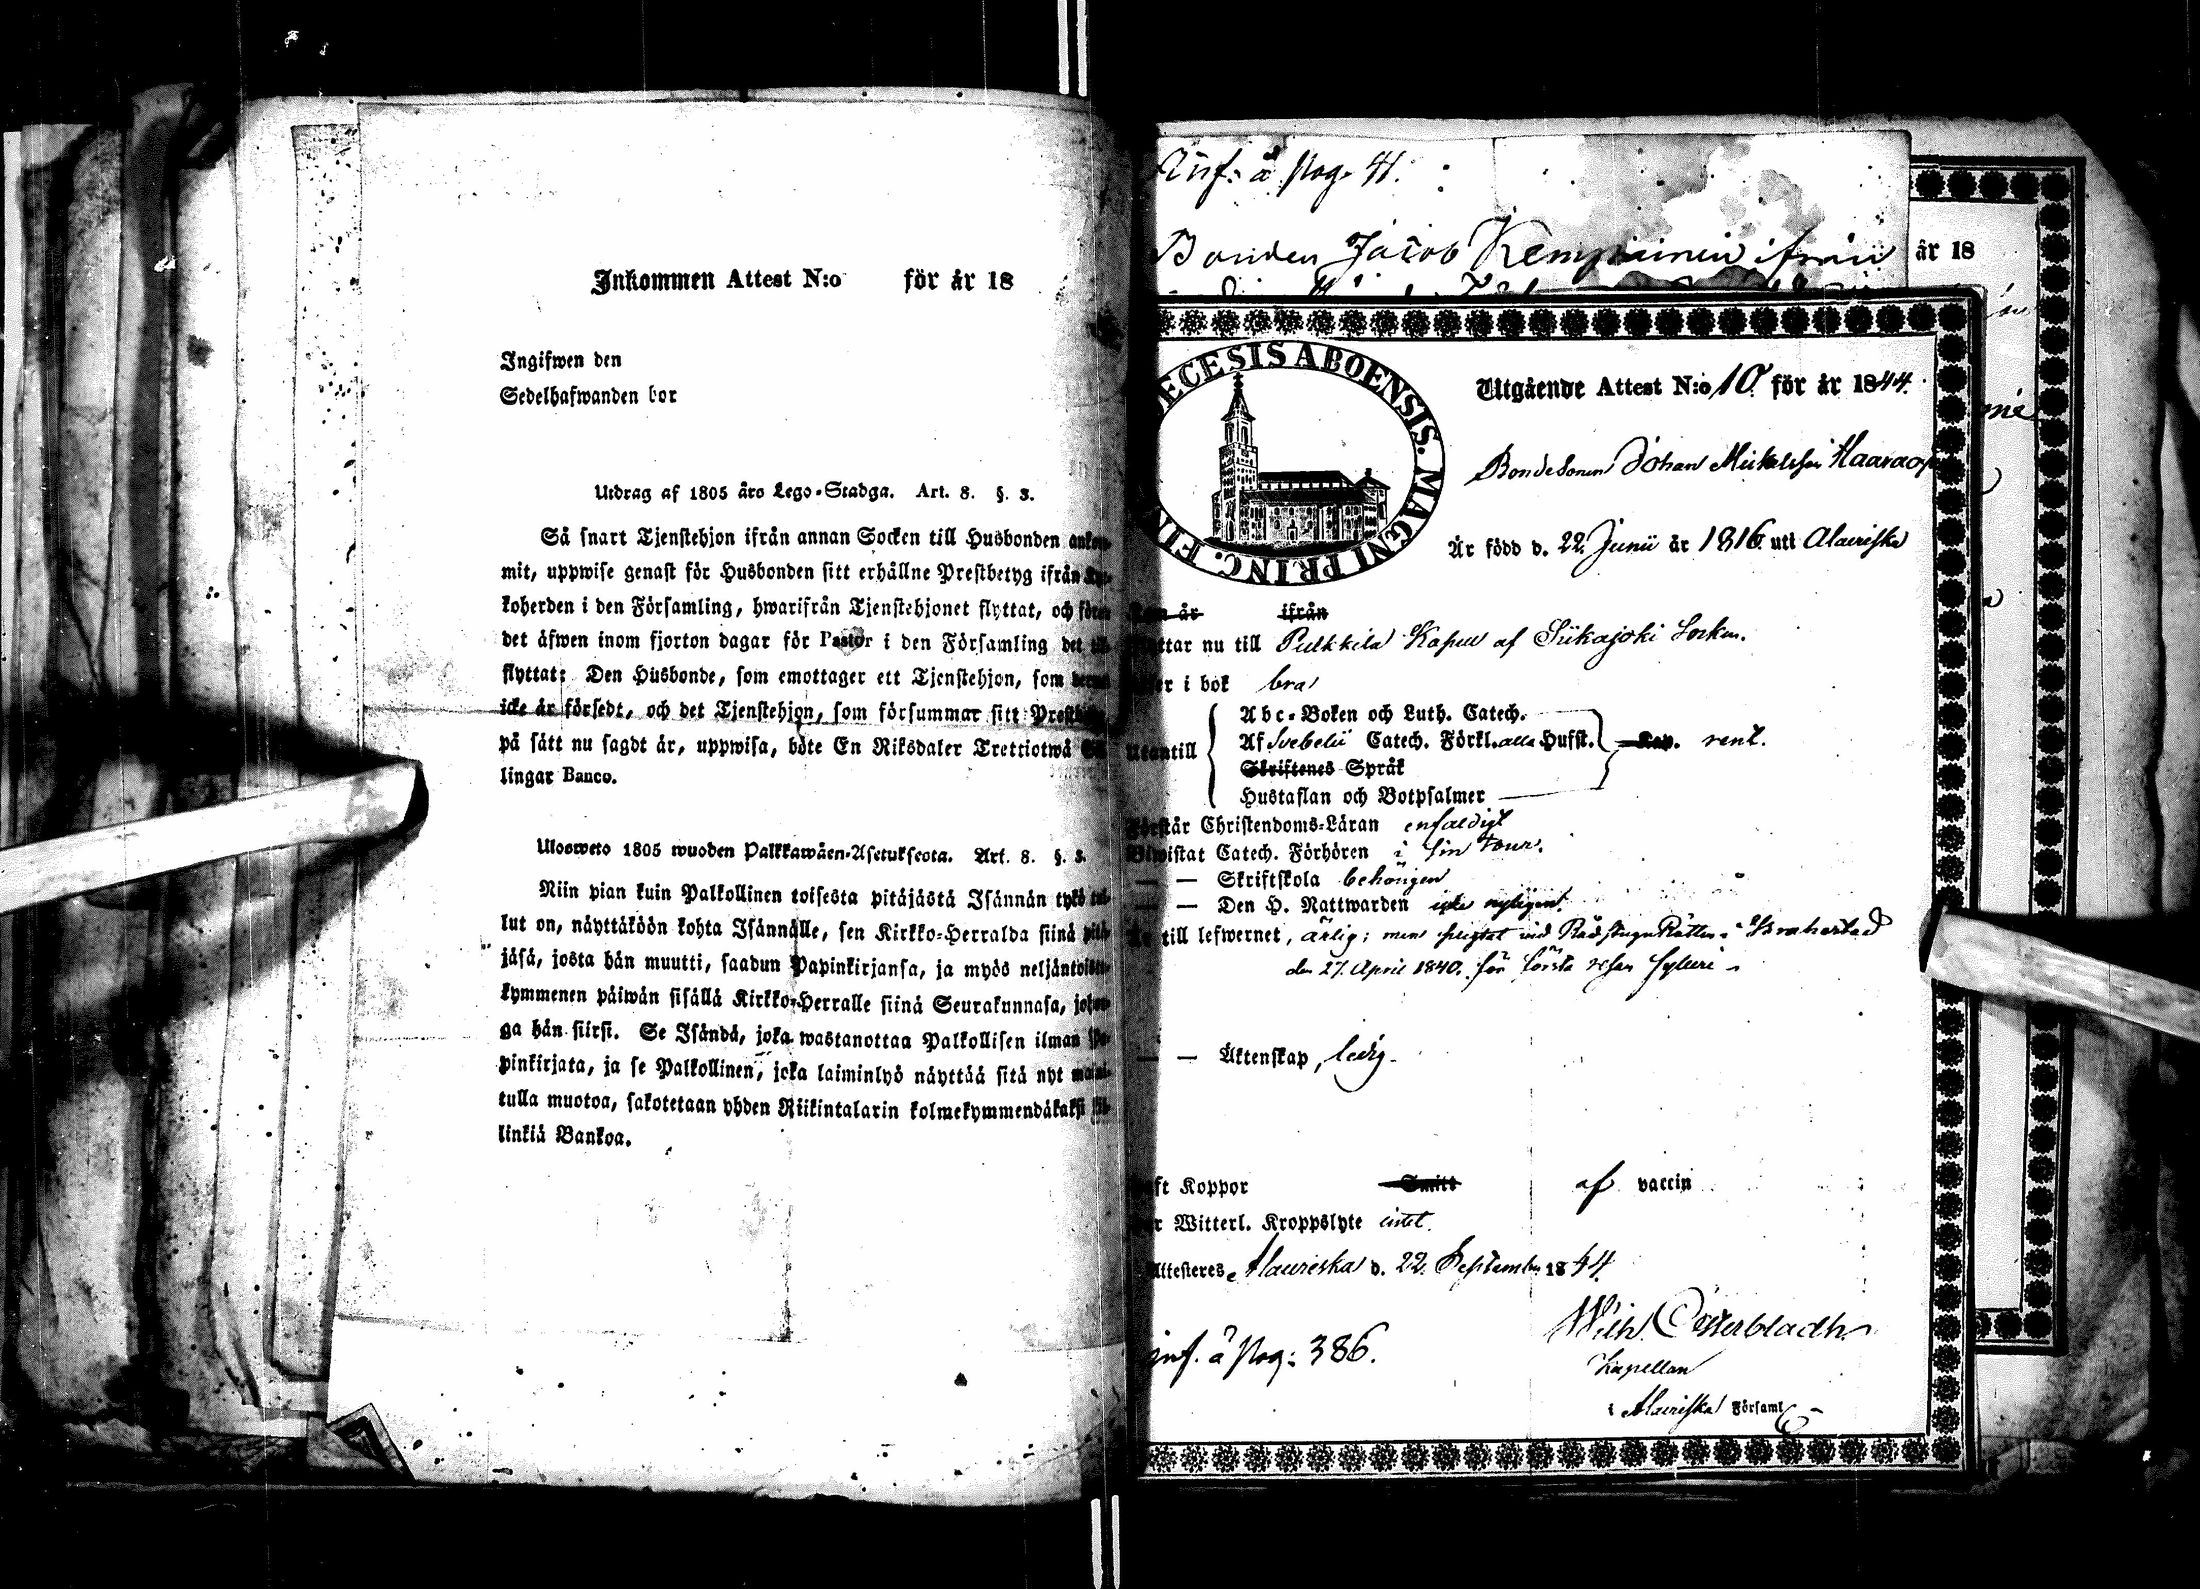 Inkommen Attest N:o för år 18
Ingifwen den
Sedelhafwanden bor
Utdrag af 1805 års Lego-Stadga. Art. 8. §. 3.
Så snart Tjenstehjon ifrån annan Socken till Husbonden
mit, uppwise genast för Husbonden sitt erhållne Prestbetyg ifrån
koherden i den Församling, hwarifrån Tjenstehjonet flyttat, och
det äfwen inom fjorton dagar för Pastor i den Församling det
flyttat: Den Husbonde, som emottager ett Tjenstehjon, som
icke är försedt, och det Tjenstehjon, som försummar sitt
på sätt nu sagdt är, uppwisa, böte En Riksdaler Trettiotwå
lingar Banco.
Ulosweto 1805 wuoden Palkkawäen-Asetuksesta. Art. 8. §. 3.
Niin pian kuin Palkollinen toisesta pitäjästä Isännän tykö
lut on, näyttäköön kohta Isännälle, sen Kirkko-Herralda siinä
jäsä, josta hän muutti, saadun Papinkirjansa, ja myös
kymmenen päiwän sisällä Kirkko-Herralle siinä Seurakunnasa,
ga hän siirsi. Se Isändä, joka wastanottaa Palkollisen ilman
pinkirjata, ja se Palkollinen, joka laiminlyö näyttää sitä nyt
tulla muotoa, sakotetaan yhden Riikintalarin kolmekymmendäkaksi
linkiä Bankoa.
Inf: å pag. 41.
Bonden Jacob Kempainen ifrån
år 18
ECESIS ABOENSIS. MAGNI PRINC. FIN
Utgående Attest N:o 10 för år 1844.
Bondesonen Johan Mickelsson
Är född d. 22 Junii år 1816 uti Alavieska
är ifrån
ttar nu till Pulkkila Kapell af Siikajoki Socken.
er i bok bra
Abc-Boken och Luth. Catech.
Af Svebelii Catech. Förkl. alla Hufst. Kap. rent.
Utantill
Skriftenes Språk
Hustaflan och Botpsalmer
Förstår Christendoms-Läran enfaldigt
Biwistat Catech. Förhören i sin tour.
— — Skriftskola behörigen
— — Den H. Nattwarden icke nyligen.
Är till lefwernet, ärlig; men pligtat wid Rådstugu Rätten i Brahestad
den 27. April 1840. för första resan fylleri
— — Äktenskap, ledig.
aft Koppor Smitt af vaccin
ar Witterl. Kroppslyte intet.
Attesteres, Alavieska d. 22. September 1844.
Wilh. Österbladh
Kapellan
i Alavieska Församl
inf. å pag: 386.